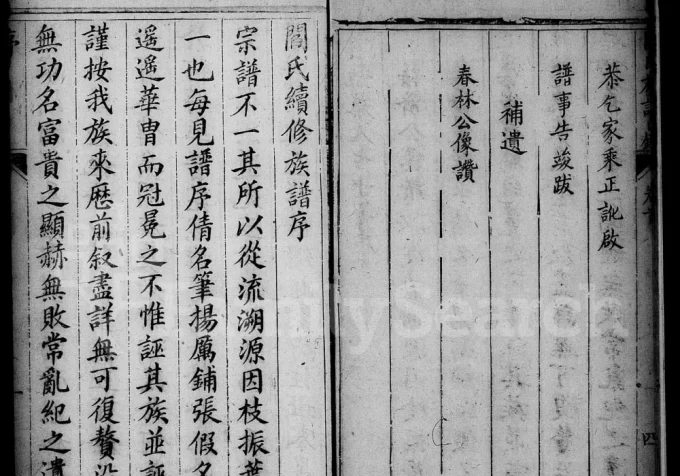 恭乞家乘正訛啟
譜事告竣跋
補遺
春林公像讚
四
閻氏續修族譜序
宗譜不一其所以從流溯源因枝振葉
一也每見譜序倩名筆揚厲鋪張假名
遥遥華胄而冠冕之不惟誣其族並誣
謹按我族來歷前叙盡詳無可復贅
無功名富貴之顯赫無敗常亂紀之
序
FamilySearch